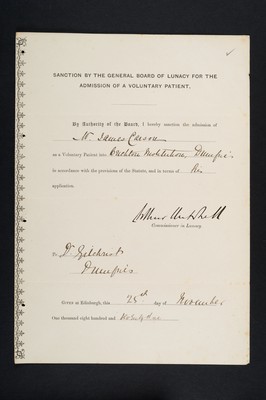 SANCTION BY THE GENERAL BOARD OF LUNACY FOR THE
ADMISSION OF A VOLUNTARY PATIENT.
By Authority of the Board, I hereby sanction the admission of
Mr James Carson
as a Voluntary Patient into Crichton Institution Dumfries
in accordance with the provisions of the Statute, and in terms of his
application.
Arthur Mitchell
Commissioner in Lunacy.
To Dr Gilchrist
Dumfries
Given at Edinburgh, this 25th day of November
One thousand eight hundred and